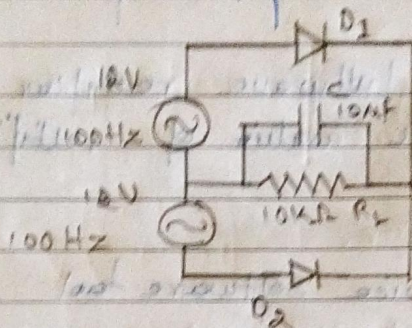 D1
12V
10μF
100Hz
12V
10KΩ RL
100 Hz
D2